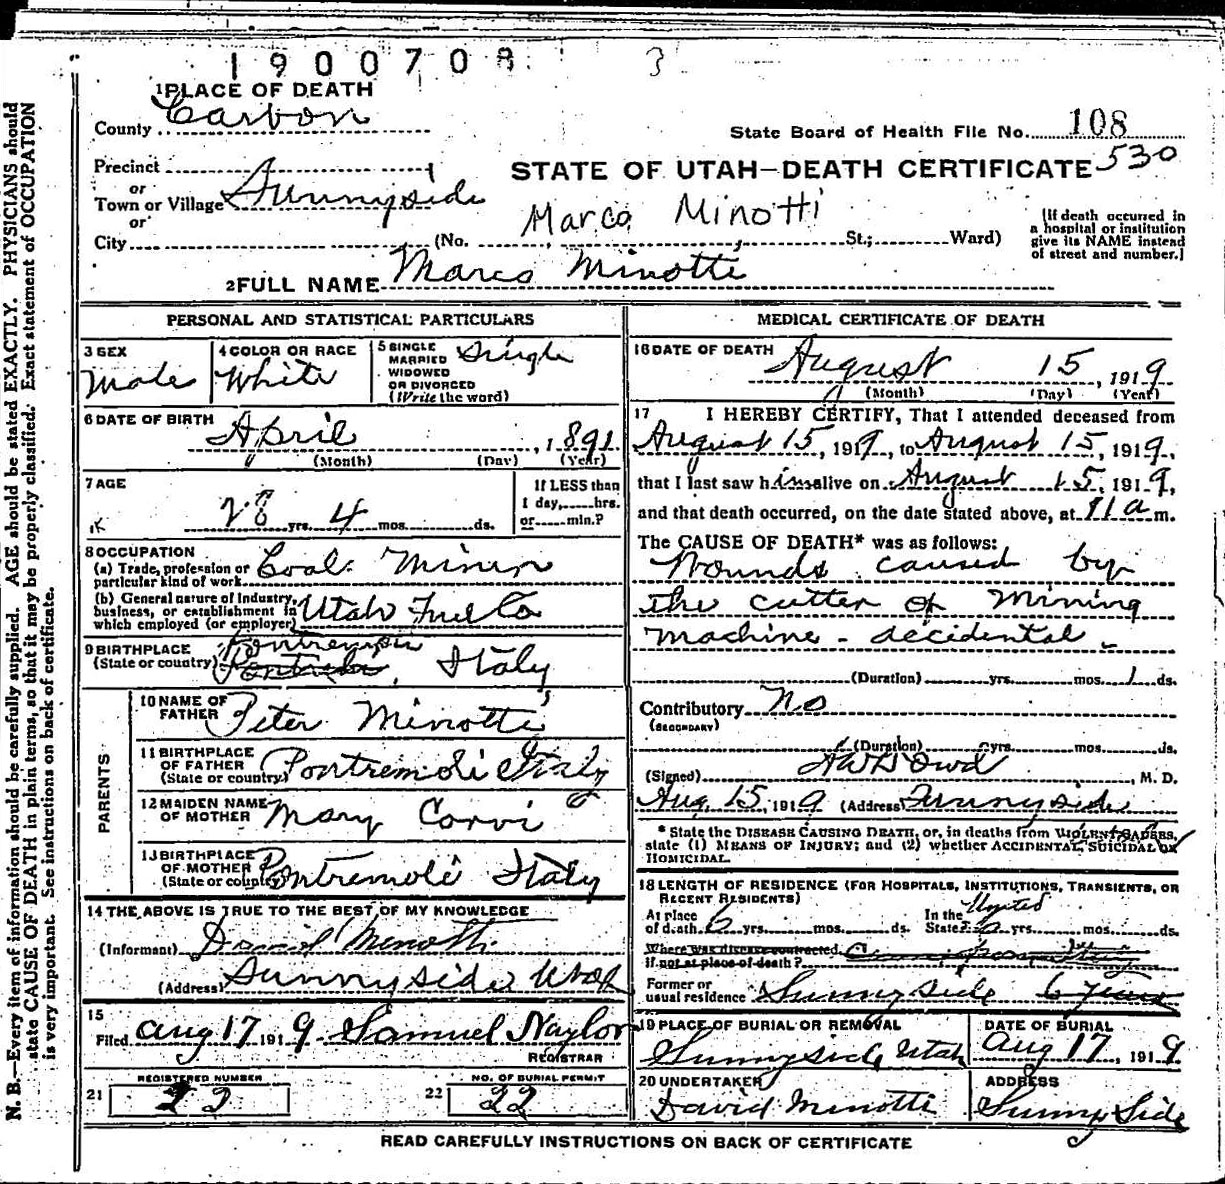 1900708 3
1 PLACE OF DEATH
County Carbon
State Board of Health File No. 108
Precinct
or
Town or Village Sunnyside
or
City
STATE OF UTAH—DEATH CERTIFICATE 530
Marco Minotti
(No. St.; Ward)
(If death occurred in
a hospital or institution
give its NAME instead
of street and number.]
2 FULL NAME Marco Minotti
PERSONAL AND STATISTICAL PARTICULARS
3 SEX
Male
4 COLOR OR RACE
White
5 SINGLE
MARRIED
WIDOWED
OR DIVORCED
(Write the word)
Single
6 DATE OF BIRTH
April, 1891
(Month) (Day) (Year)
7 AGE
28 yrs. 4 mos. ds.
If LESS than
1 day, hrs.
or min.?
8 OCCUPATION
(a) Trade, profession or
particular kind of work Coal Miner
(b) General nature of Industry,
business, or establishment in
which employed (or employer) Utah Fuel Co
9 BIRTHPLACE
(State or country) Italy
PARENTS
10 NAME OF
FATHER Peter Minotti
11 BIRTHPLACE
OF FATHER
(State or country) Pontremoli Italy
12 MAIDEN NAME
OF MOTHER Mary Corvi
13 BIRTHPLACE
OF MOTHER
(State or country) Pontremoli Italy
14 THE ABOVE IS TRUE TO THE BEST OF MY KNOWLEDGE
(Informant) Minotti
(Address) Sunnyside Utah
15
Filed Aug 17 1919 Samuel Naylor
REGISTRAR
21 REGISTERED NUMBER
22
22 NO. OF BURIAL PERMIT
22
MEDICAL CERTIFICATE OF DEATH
16 DATE OF DEATH
August 15, 1919
(Month) (Day) (Year)
17 I HEREBY CERTIFY, That I attended deceased from
August 15, 1919, to August 15, 1919,
that I last saw him alive on August 15, 1919,
and that death occurred, on the date stated above, at 11 a m.
The CAUSE OF DEATH* was as follows:
Wounds caused by
the cutter of Mining
Machine - accidental
(Duration) yrs. mos. 1 ds.
Contributory No
(SECONDARY)
(Duration) yrs. mos. ds.
(Signed) Dowd, M. D.
Aug. 15, 1919 (Address) Sunnyside
* State the DISEASE CAUSING DEATH, or, in deaths from VIOLENT CAUSES,
state (1) MEANS OF INJURY; and (2) whether ACCIDENTAL, SUICIDAL OR
HOMICIDAL.
18 LENGTH OF RESIDENCE (FOR HOSPITALS, INSTITUTIONS, TRANSIENTS, OR
RECENT RESIDENTS)
At place
of death 6 yrs. mos. ds.
In the United
States 6 yrs. mos. ds.
Where was disease contracted,
if not at place of death?
Former or
usual residence Sunnyside 6 years
19 PLACE OF BURIAL OR REMOVAL
Sunnyside, Utah
DATE OF BURIAL
Aug 17, 1919
20 UNDERTAKER
David Minotti
ADDRESS
Sunny Side
READ CAREFULLY INSTRUCTIONS ON BACK OF CERTIFICATE
N. B.—Every item of information should be carefully supplied. AGE should be stated EXACTLY. PHYSICIANS should
state CAUSE OF DEATH in plain terms, so that it may be properly classified. Exact statement of OCCUPATION
is very important. See instructions on back of certificate.